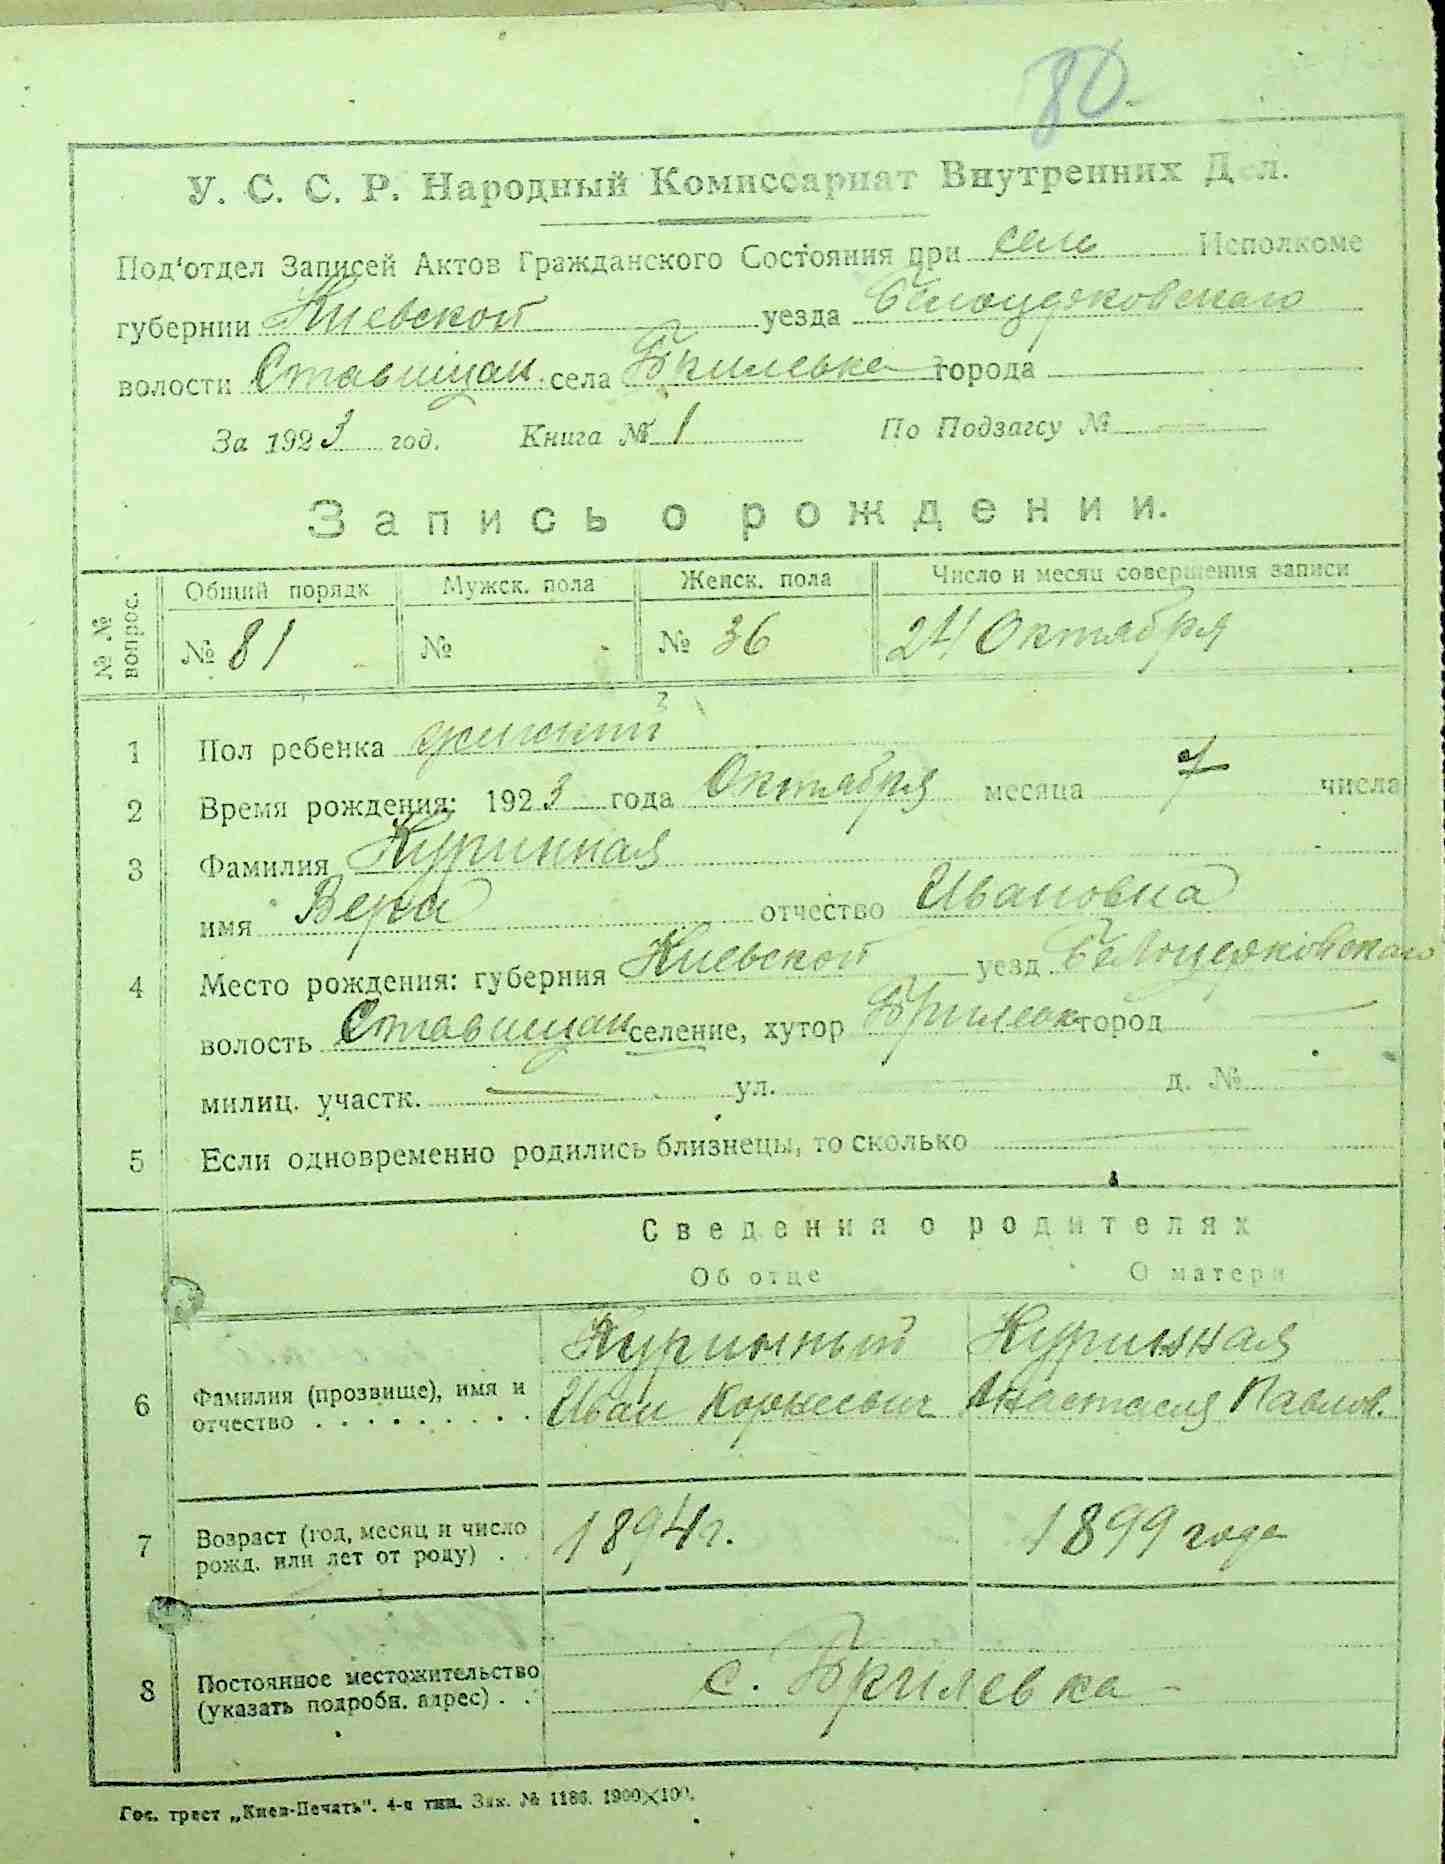 80.
У. С. С. Р. Народный Комиссариат Внутренних Дел.
Под‘отдел Записей Актов Гражданского Состояния при Сель Исполкоме
губернии Киевской уезда Белоцерковского
волости Ставищан. села Брилевка города
За 1923 год. Книга № 1 По Подзагсу №
Запись о рождении.
№ № вопрос. Общий порядк Мужск. пола Женск. пола Число и месяц совершения записи
№ 81 № № 36 24 Октября
1 Пол ребенка женский
2 Время рождения: 1923 года Октября месяца 7 числа
3 Фамилия Куринная
имя Вера отчество Ивановна
4 Место рождения: губерния Киевской уезд Белоцерковского
волость Ставищан селение, хутор Брилевк город
милиц. участк. ул. д. №
5 Если одновременно родились близнецы, то сколько
Сведения о родителях
Об отце О матери
Куринный Куринная
6 Фамилия (прозвище), имя и отчество . . . . . . . . . Иван Корнеевич Анастасия Павлов.
7 Возраст (год, месяц и число рожд. или лет от роду) . . 1894 г. 1899 года
8 Постоянное местожительство (указать подробн. адрес) . . с. Брилевка
Гос. трест „Киев-Печать“. 4-я тип. Зак. № 1186. 1900×100.